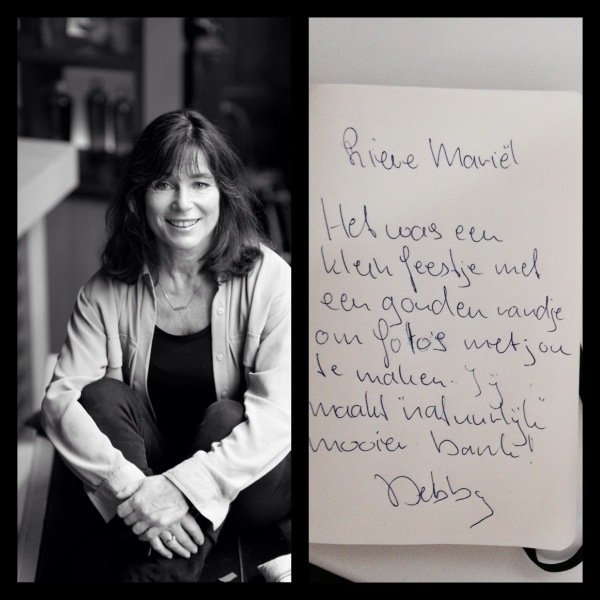 Lieve Mariël
Het was een
klein feestje met
een gouden randje
om foto's met jou
te maken. Jij
maakt "natuurlijk"
mooier. Dank!
Debby